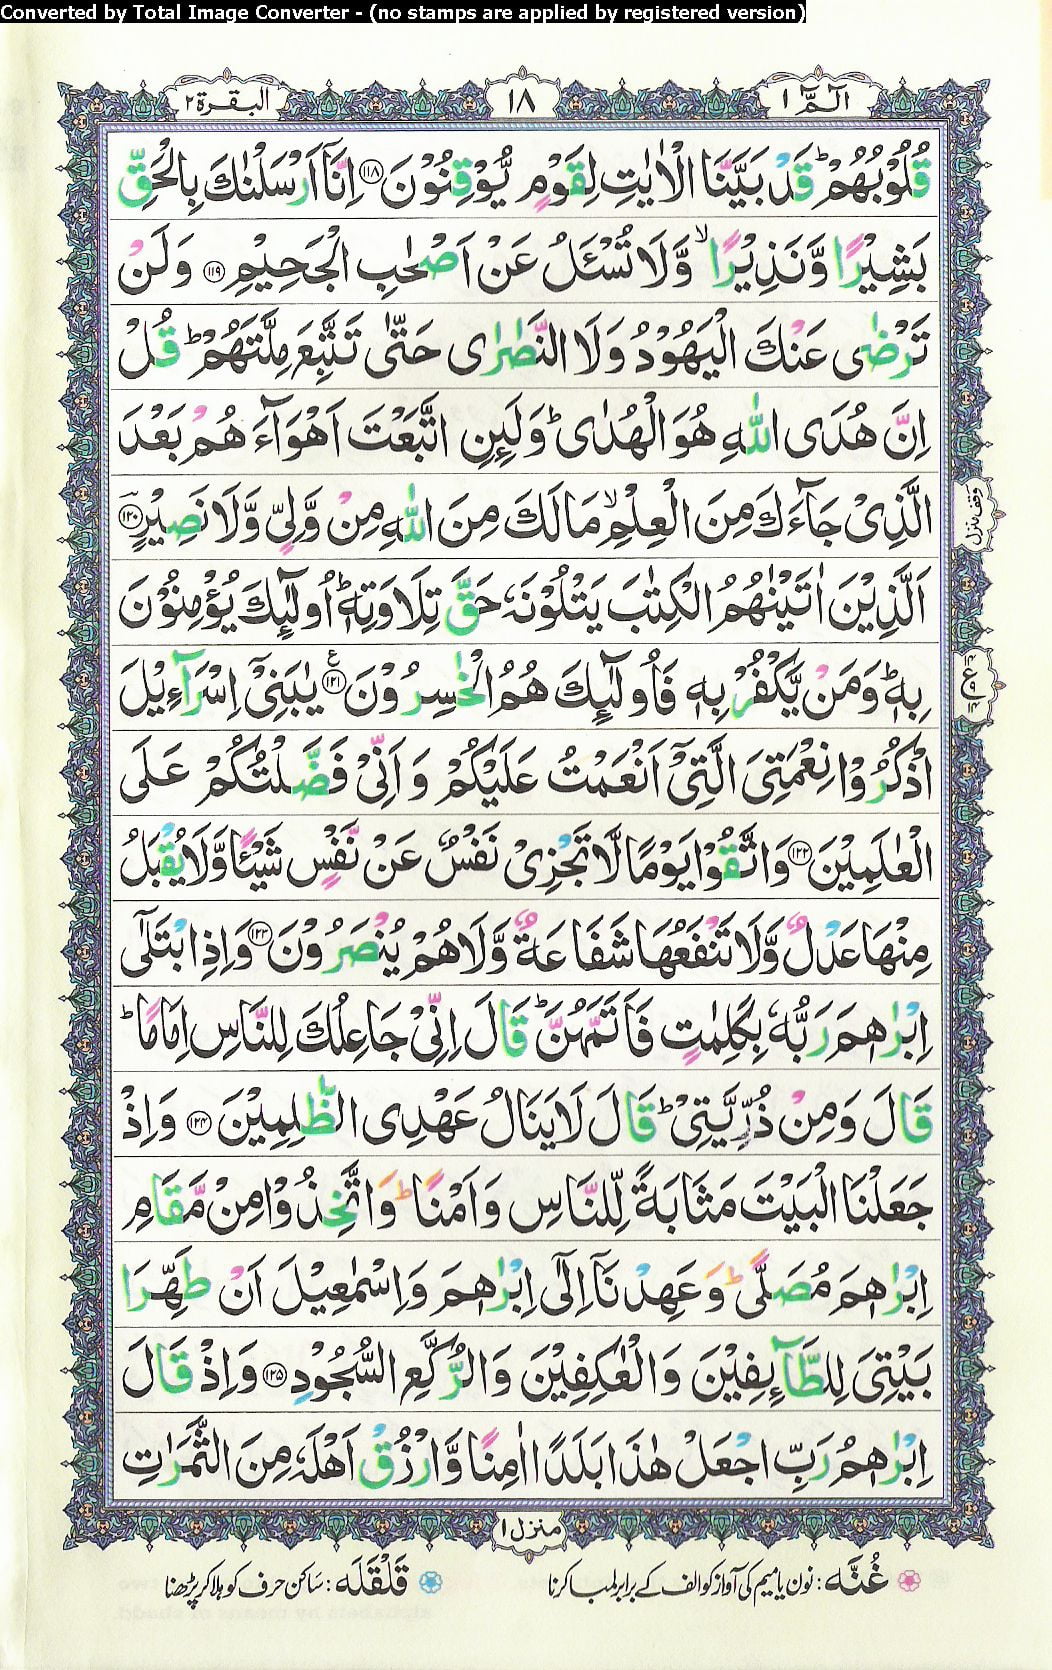 Converted by Total Image Converter - (no stamps are applied by registered version)
الٓمّٓ ١
١٨
البقرة ٢
قُلُوْبُهُمْ ؕ قَدْ بَيَّنَّا الْاٰيٰتِ لِقَوْمٍ يُّوْقِنُوْنَ ۝١١٨ اِنَّاۤ اَرْسَلْنٰكَ بِالْحَقِّ
بَشِيْرًا وَّنَذِيْرًا ۙ وَّلَا تُسْـَٔلُ عَنْ اَصْحٰبِ الْجَحِيْمِ ۝١١٩ وَلَنْ
تَرْضٰى عَنْكَ الْيَهُوْدُ وَلَا النَّصٰرٰى حَتّٰى تَتَّبِعَ مِلَّتَهُمْ ؕ قُلْ
اِنَّ هُدَى اللّٰهِ هُوَ الْهُدٰى ؕ وَلَىِٕنِ اتَّبَعْتَ اَهْوَآءَ هُمْ بَعْدَ
الَّذِيْ جَآءَكَ مِنَ الْعِلْمِ ۙ مَا لَكَ مِنَ اللّٰهِ مِنْ وَّلِيٍّ وَّلَا نَصِيْرٍ ۝١٢٠
وقف منزل
اَلَّذِيْنَ اٰتَيْنٰهُمُ الْكِتٰبَ يَتْلُوْنَهٗ حَقَّ تِلَاوَتِهٖ ؕ اُولٰٓىِٕكَ يُؤْمِنُوْنَ
بِهٖ ؕ وَمَنْ يَّكْفُرْ بِهٖ فَاُولٰٓىِٕكَ هُمُ الْخٰسِرُوْنَ ۝١٢١ ع يٰبَنِيْۤ اِسْرَآءِيْلَ
ع ٩
اذْكُرُوْا نِعْمَتِيَ الَّتِيْۤ اَنْعَمْتُ عَلَيْكُمْ وَاَنِّيْ فَضَّلْتُكُمْ عَلَى
الْعٰلَمِيْنَ ۝١٢٢ وَاتَّقُوْا يَوْمًا لَّا تَجْزِيْ نَفْسٌ عَنْ نَّفْسٍ شَيْـًٔا وَّلَا يُقْبَلُ
مِنْهَا عَدْلٌ وَّلَا تَنْفَعُهَا شَفَاعَةٌ وَّلَا هُمْ يُنْصَرُوْنَ ۝١٢٣ وَاِذِ ابْتَلٰٓى
اِبْرٰهٖمَ رَبُّهٗ بِكَلِمٰتٍ فَاَتَمَّهُنَّ ؕ قَالَ اِنِّيْ جَاعِلُكَ لِلنَّاسِ اِمَامًا ؕ
قَالَ وَمِنْ ذُرِّيَّتِيْ ؕ قَالَ لَا يَنَالُ عَهْدِي الظّٰلِمِيْنَ ۝١٢٤ وَاِذْ
جَعَلْنَا الْبَيْتَ مَثَابَةً لِّلنَّاسِ وَاَمْنًا ؕ وَاتَّخِذُوْا مِنْ مَّقَامِ
اِبْرٰهٖمَ مُصَلًّى ؕ وَعَهِدْنَاۤ اِلٰٓى اِبْرٰهٖمَ وَاِسْمٰعِيْلَ اَنْ طَهِّرَا
بَيْتِيَ لِلطَّآىِٕفِيْنَ وَالْعٰكِفِيْنَ وَالرُّكَّعِ السُّجُوْدِ ۝١٢٥ وَاِذْ قَالَ
اِبْرٰهٖمُ رَبِّ اجْعَلْ هٰذَا بَلَدًا اٰمِنًا وَّارْزُقْ اَهْلَهٗ مِنَ الثَّمَرٰتِ
منزل ١
غُنَّه : نون یا میم کی آواز کو الف کے برابر لمبا کرنا
قَلْقَلَه : ساکن حرف کو ہلا کر پڑھنا